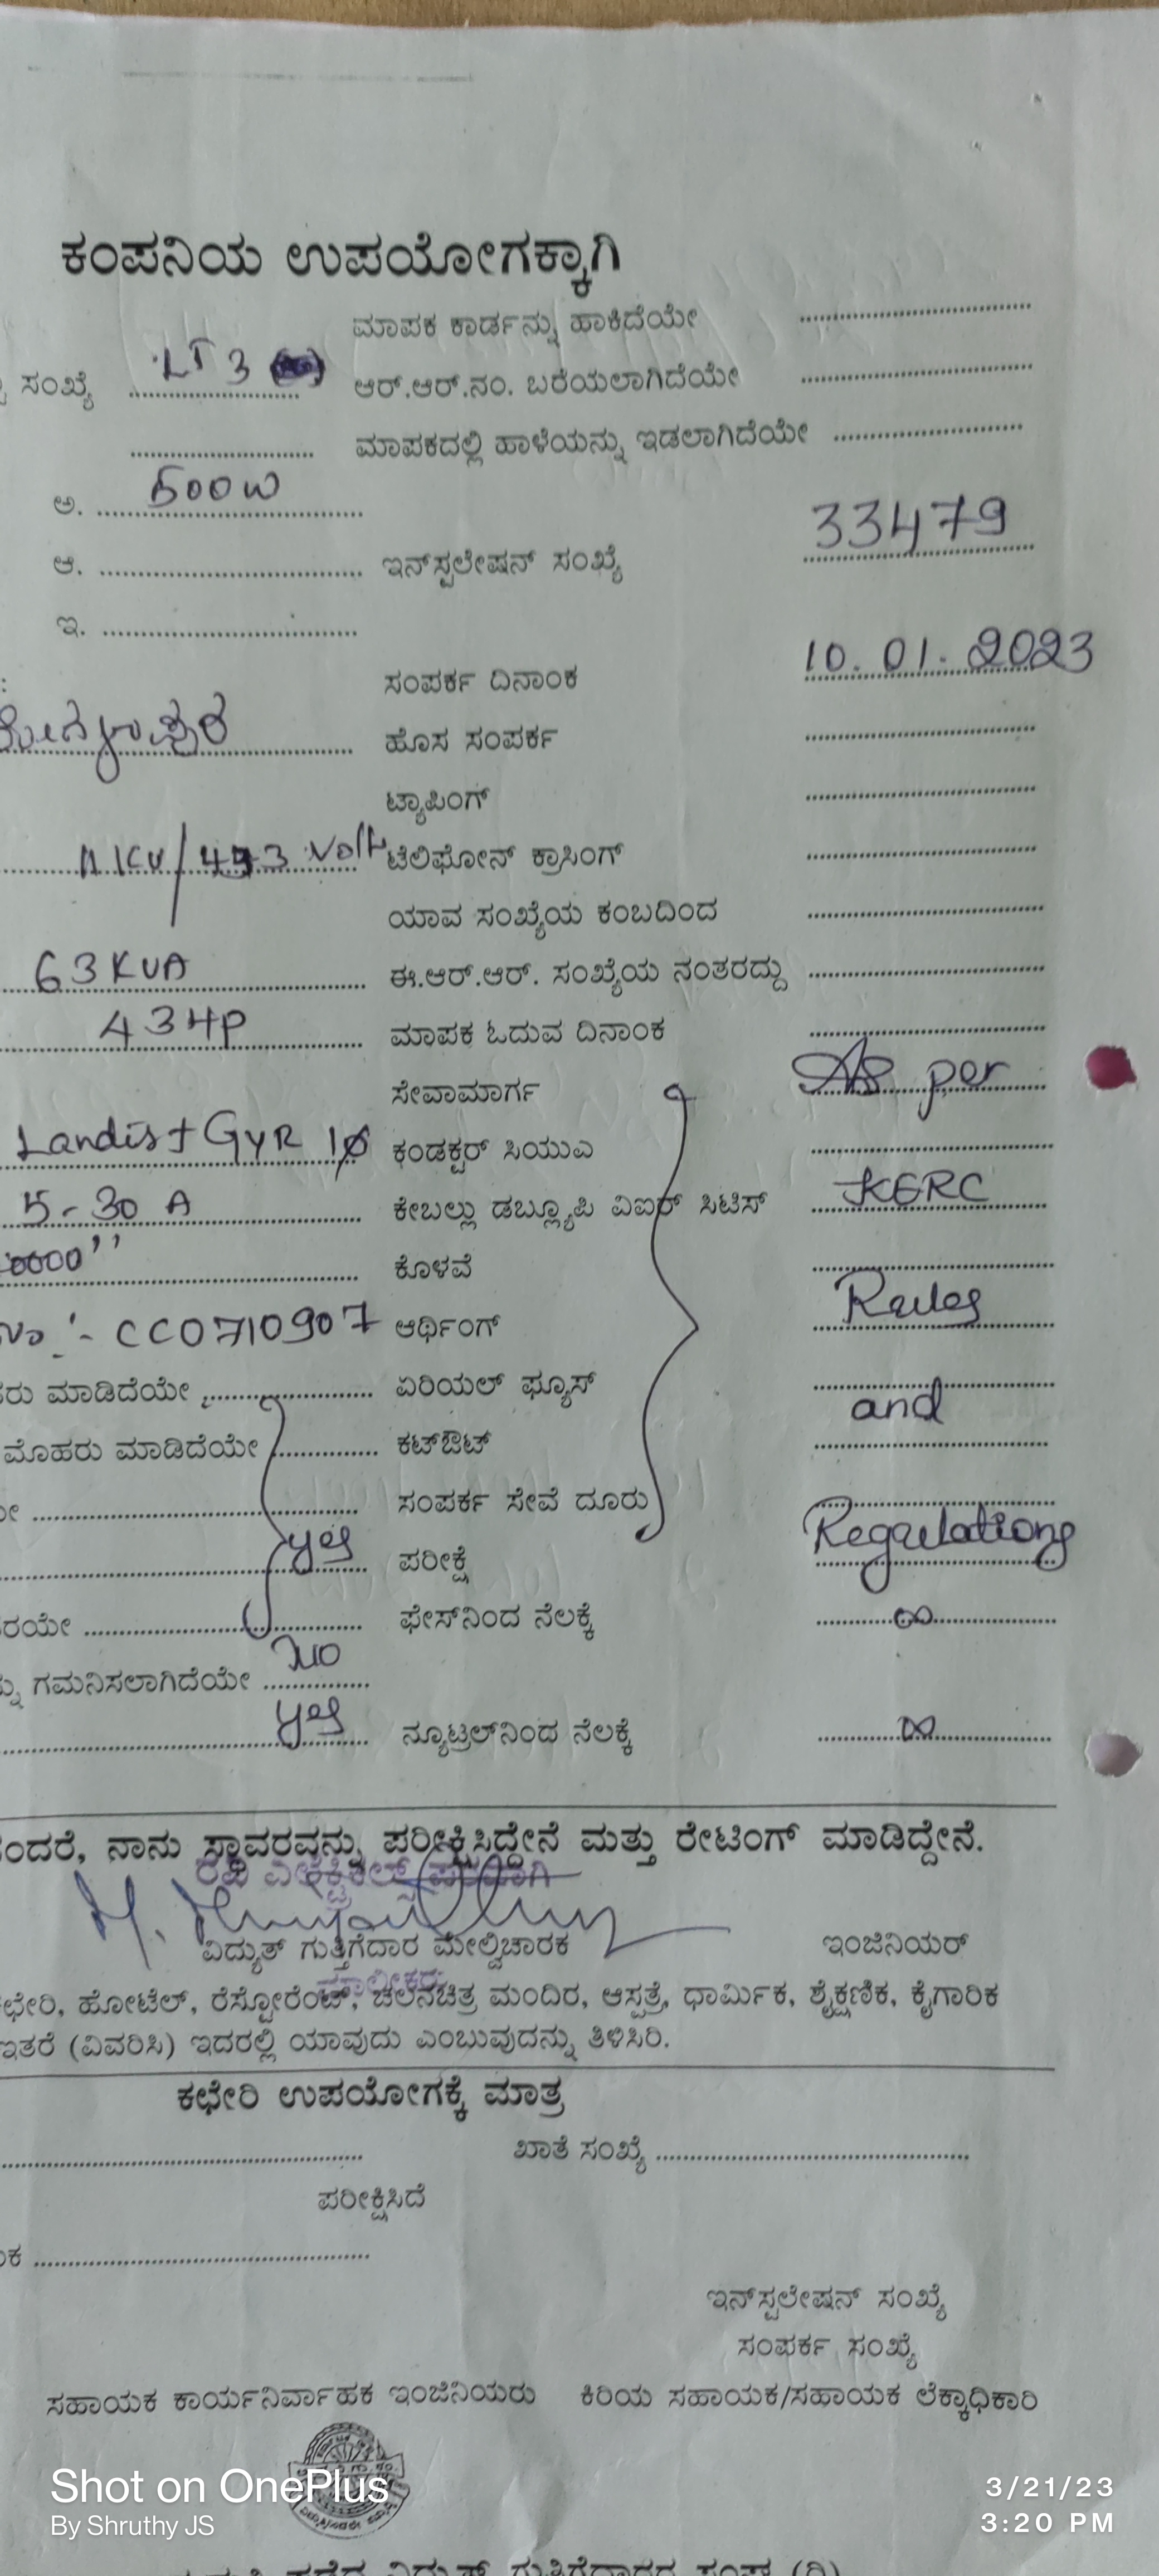 ಕಂಪನಿಯ ಉಪಯೋಗಕ್ಕಾಗಿ
ಮಾಪಕ ಕಾರ್ಡನ್ನು ಹಾಕಿದೆಯೇ
ಸಂಖ್ಯೆ LT 3 ಆರ್.ಆರ್.ನಂ. ಬರೆಯಲಾಗಿದೆಯೇ
ಮಾಪಕದಲ್ಲಿ ಹಾಳೆಯನ್ನು ಇಡಲಾಗಿದೆಯೇ
ಅ. 500 W
33479
ಆ. ಇನ್‌ಸ್ಟಲೇಷನ್ ಸಂಖ್ಯೆ
ಇ.
ಸಂಪರ್ಕ ದಿನಾಂಕ 10.01.2023
ಹೊಸ ಸಂಪರ್ಕ
ಟ್ಯಾಪಿಂಗ್
11 KV/433 Volt ಟೆಲಿಫೋನ್ ಕ್ರಾಸಿಂಗ್
ಯಾವ ಸಂಖ್ಯೆಯ ಕಂಬದಿಂದ
63 KVA ಈ.ಆರ್.ಆರ್. ಸಂಖ್ಯೆಯ ನಂತರದ್ದು
43 HP ಮಾಪಕ ಓದುವ ದಿನಾಂಕ
ಸೇವಾಮಾರ್ಗ As per
Landis + GYR 1φ ಕಂಡಕ್ಟರ್ ಸಿಯುಎ
5-30 A ಕೇಬಲ್ಲು ಡಬ್ಲ್ಯೂಪಿ ವಿಐಆರ್ ಸಿಟಿಸ್ KERC
ಕೊಳವೆ
No :- CC0710907 ಆರ್ಥಿಂಗ್ Rules
ಮಾಡಿದೆಯೇ ಏರಿಯಲ್ ಫ್ಯೂಸ್
ಮೊಹರು ಮಾಡಿದೆಯೇ ಕಟ್‌ಔಟ್ and
ಸಂಪರ್ಕ ಸೇವೆ ದೂರು
ಪರೀಕ್ಷೆ Regulations
ಫೇಸ್‌ನಿಂದ ನೆಲಕ್ಕೆ ∞
ಗಮನಿಸಲಾಗಿದೆಯೇ
ನ್ಯೂಟ್ರಲ್‌ನಿಂದ ನೆಲಕ್ಕೆ ∞
ನಾನು ಸ್ಥಾವರವನ್ನು ಪರೀಕ್ಷಿಸಿದ್ದೇನೆ ಮತ್ತು ರೇಟಿಂಗ್ ಮಾಡಿದ್ದೇನೆ.
ವಿದ್ಯುತ್ ಗುತ್ತಿಗೆದಾರ ಮೇಲ್ವಿಚಾರಕ ಇಂಜಿನಿಯರ್
ಹೋಟೆಲ್, ರೆಸ್ಟೋರೆಂಟ್, ಚಲನಚಿತ್ರ ಮಂದಿರ, ಆಸ್ಪತ್ರೆ, ಧಾರ್ಮಿಕ, ಶೈಕ್ಷಣಿಕ, ಕೈಗಾರಿಕ
ಇತರೆ (ವಿವರಿಸಿ) ಇದರಲ್ಲಿ ಯಾವುದು ಎಂಬುವುದನ್ನು ತಿಳಿಸಿರಿ.
ಕಛೇರಿ ಉಪಯೋಗಕ್ಕೆ ಮಾತ್ರ
ಖಾತೆ ಸಂಖ್ಯೆ
ಪರೀಕ್ಷಿಸಿದೆ
ಇನ್‌ಸ್ಟಲೇಷನ್ ಸಂಖ್ಯೆ
ಸಂಪರ್ಕ ಸಂಖ್ಯೆ
ಸಹಾಯಕ ಕಾರ್ಯನಿರ್ವಾಹಕ ಇಂಜಿನಿಯರು ಕಿರಿಯ ಸಹಾಯಕ/ಸಹಾಯಕ ಲೆಕ್ಕಾಧಿಕಾರಿ
Shot on OnePlus
By Shruthy JS
3/21/23
3:20 PM